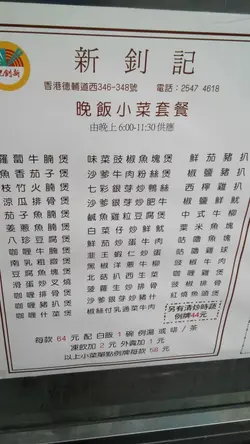 新釗記
香港德輔道西346-348號 電話：2547 4618
晚飯小菜套餐
由晚上 6:00-11:30 供應
蘿蔔牛腩煲 味菜豉椒魚塊煲 鮮茄豬扒
魚香茄子煲 沙爹牛肉粉絲煲 椒鹽豬扒
枝竹火腩煲 七彩銀芽炒鴨絲 西檸雞扒
涼瓜排骨煲 沙爹銀芽炒肥牛 椒鹽雞扒
茄子魚腩煲 鹹魚雞粒豆腐煲 中式牛柳
姜蔥魚腩煲 白菜仔炒鮮魷 粟米魚塊
八珍豆腐煲 鮮茄炒蛋牛肉 咕嚕魚塊
咖喱牛腩煲 韮王蝦仁炒蛋 咕嚕雞球
南乳粗齋煲 黑椒洋蔥牛柳 豉椒牛肉
豆腐魚塊煲 北菇扒西生菜 咖喱雞煲
滑蛋炒叉燒 菠蘿生炒排骨 豉椒排骨
咖喱排骨煲 沙爹銀芽炒豬什 紅燒魚頭煲
咖喱豬扒煲 椒絲付乳通菜牛肉
咖喱什菜煲
另有清炒時蔬
例牌44元
每款 64 元 配 白飯 1 碗 例湯 或 啡／茶
凍飲加 2 元 外賣加 1 元
以上小菜單點例牌每款 58 元